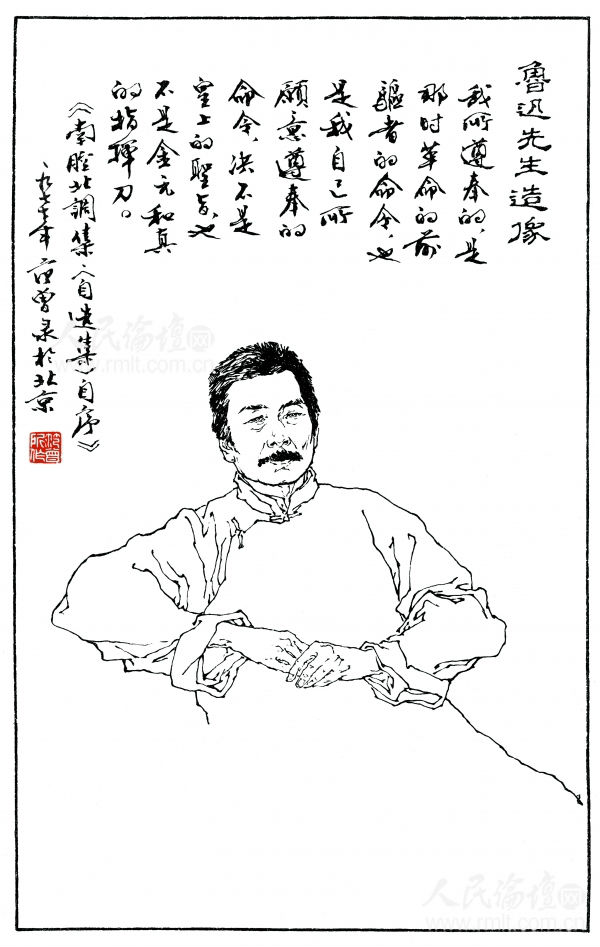 魯迅先生造像
我所遵奉的，是
那时革命的前
驅者的命令，也
是我自己所
願意遵奉的
命令，决不是
皇上的聖旨，也
不是金元和真
的指揮刀。
《南腔北調集·〈自選集〉自序》
一九七七年 范曾录於北京
范曾
所作
人民论坛网
www.rmlt.com.cn
人民论坛网
www.rmlt.com.cn